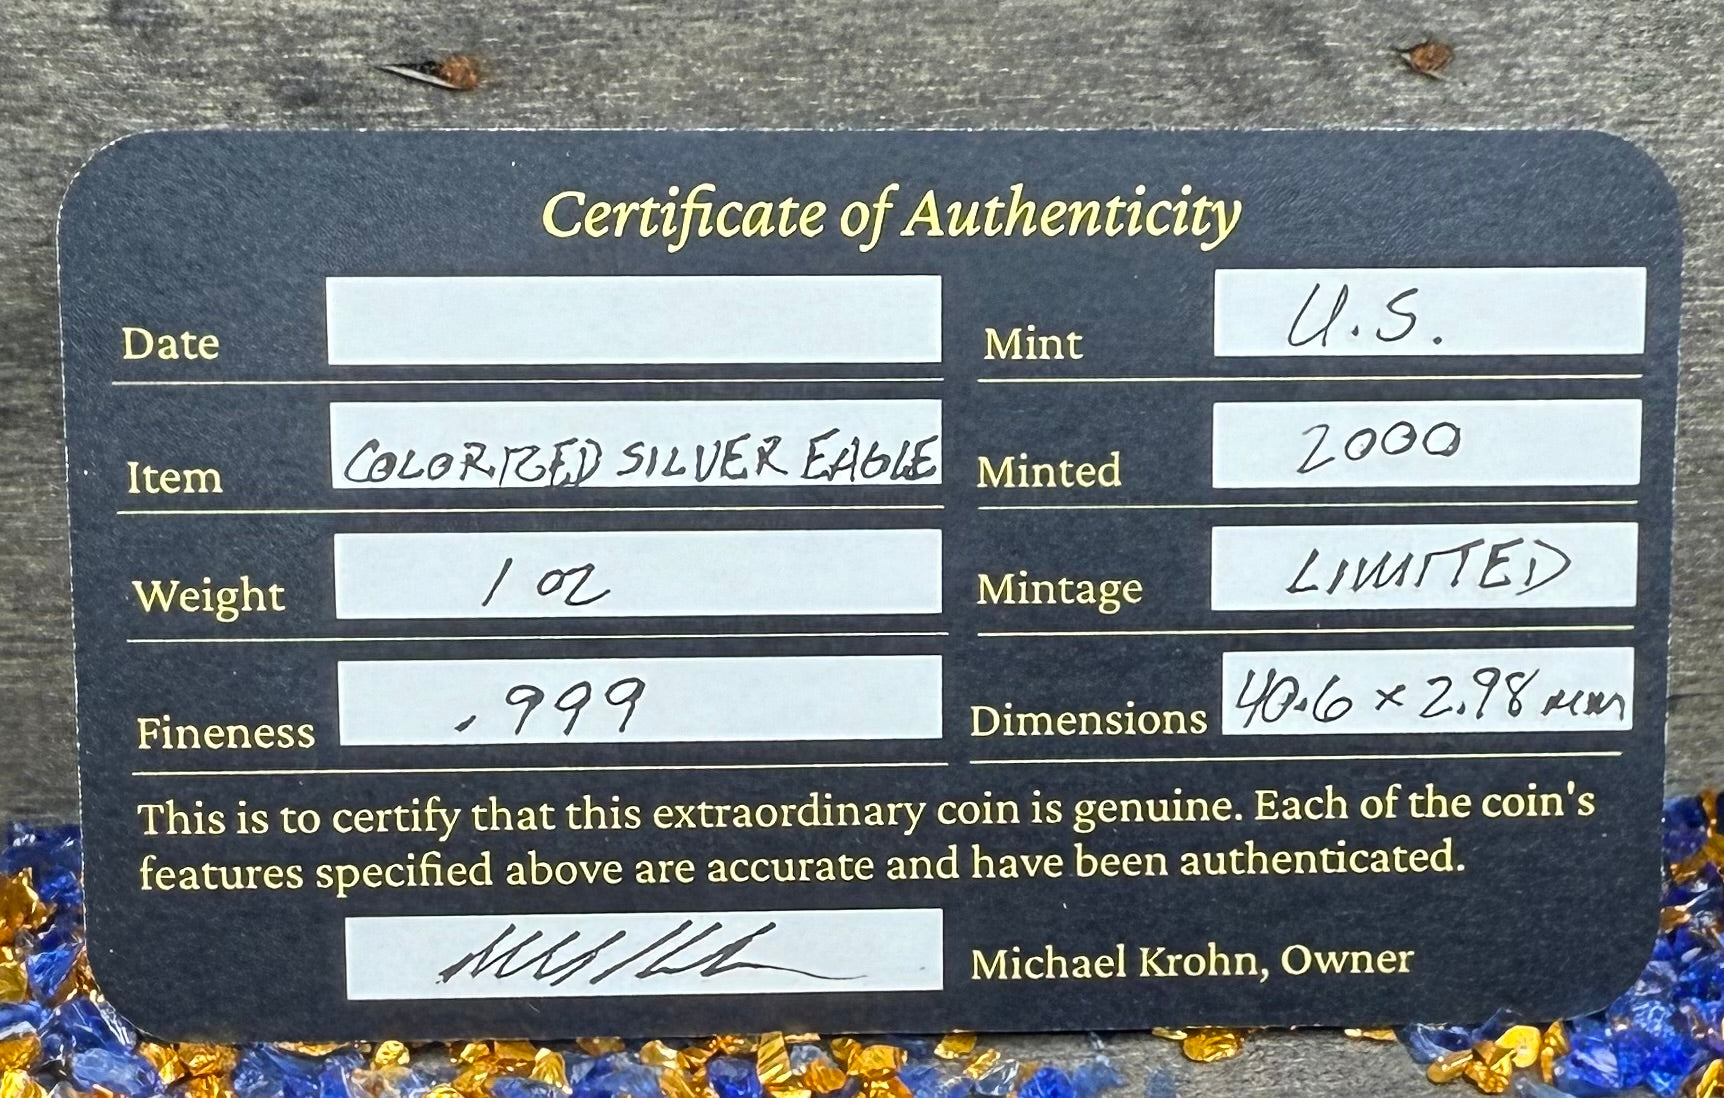 Certificate of Authenticity
Date
Mint U.S.
Item COLORIZED SILVER EAGLE
Minted 2000
Weight 1 oz
Mintage LIMITED
Fineness .999
Dimensions 40.6 x 2.98 mm
This is to certify that this extraordinary coin is genuine. Each of the coin's
features specified above are accurate and have been authenticated.
Michael Krohn, Owner